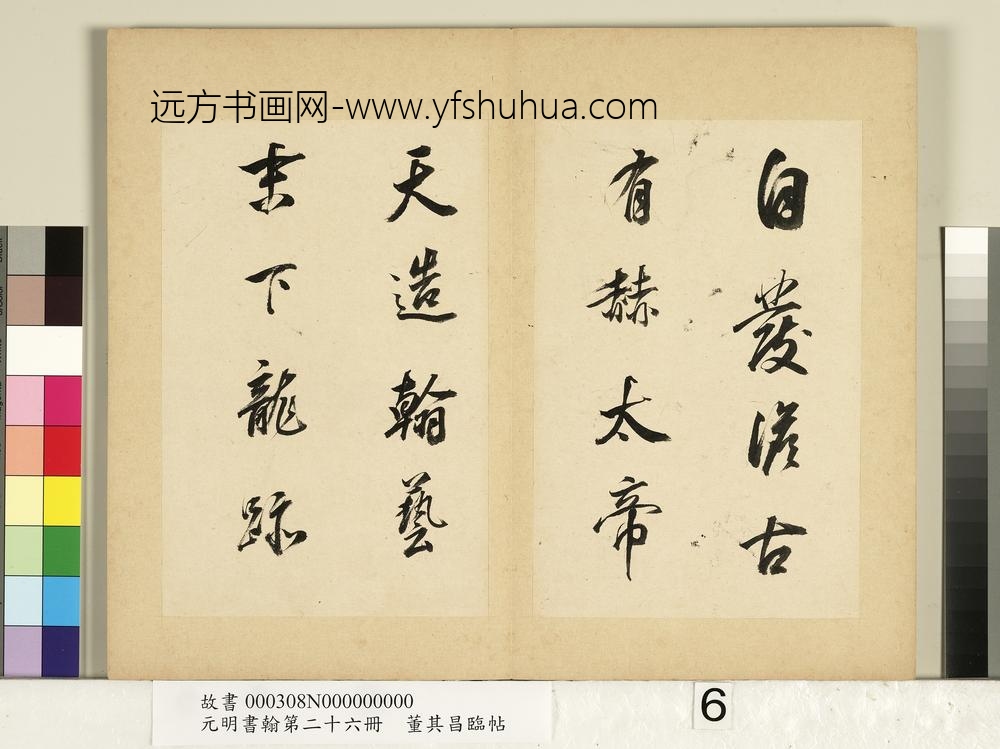 远方书画网-www.yfshuhua.com
自發淡古
有赫太帝
天造翰藝
末下龍跡
故書 000308N000000000
元明書翰第二十六冊　董其昌臨帖
6